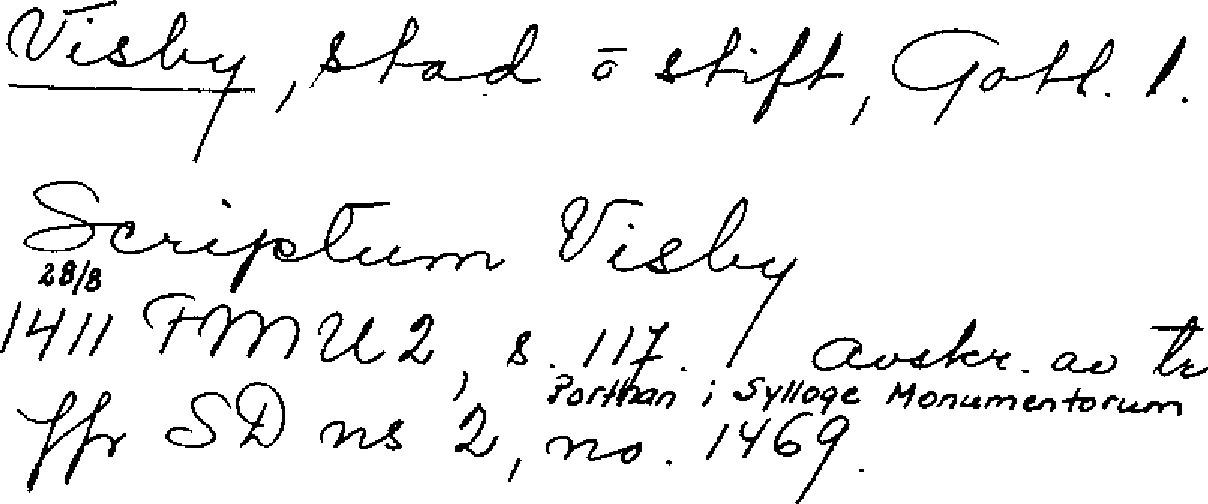 Visby, stad ō stift, Gotl. l.
Scriptum Visby
28/8
1411 FMU 2, s. 117. avskr. av tr
Porthan i Sylloge Monumentorum
jfr SD ns 2, no. 1469.